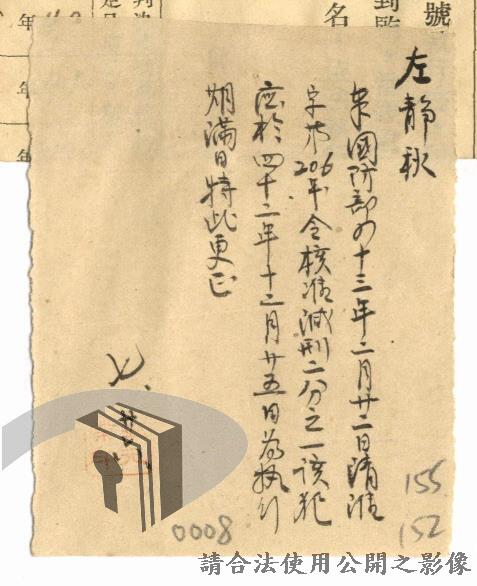 左靜秋
奉國防部四十三年二月廿二日清澈
字第206號令核准減刑二分之一該犯
應於四十二年十二月廿五日為執行
期滿日特此更正
七、
155
152
0008
請合法使用公開之影像
號
到監
名
判決
年
年
年